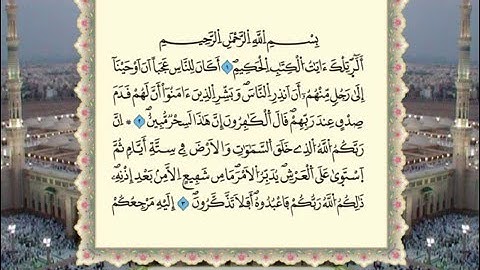 بِسْمِ اللَّهِ الرَّحْمَٰنِ الرَّحِيمِ
أَلَٓرۖ تِلْكَ ءَايَٰتُ الْكِتَٰبِ الْحَكِيمِۖ ١ أَكَانَ لِلنَّاسِ عَجَباً اَنَ اَوْحَيْنَآ
إِلَىٰ رَجُلٖ مِّنْهُمُۥٓ أَنَ اَنذِرِ النَّاسَۖ وَبَشِّرِ الذِينَ ءَامَنُوٓاْ أَنَّ لَهُمْ قَدَمَ
صِدْقٍ عِندَ رَبِّهِمْۖ قَالَ الْكَٰفِرُونَ إِنَّ هَٰذَا لَسِحْرٞ مُّبِينٌۖ ٢ ۞ اِنَّ
رَبَّكُمُ اللَّهُ الذِے خَلَقَ السَّمَٰوَٰتِ وَالْأَرْضَ فِے سِتَّةِ أَيَّامٖ ثُمَّ
اَسْتَوَىٰ عَلَى الْعَرْشِۖ يُدَبِّرُ الْأَمْرَۖ مَا مِن شَفِيعٍ اِلَّا مِنۢ بَعْدِ إِذْنِهِۦۖ
ذَٰلِكُمُ اللَّهُ رَبُّكُمْ فَاعْبُدُوهُۖ أَفَلَا تَذَّكَّرُونَۖ ٣ إِلَيْهِ مَرْجِعُكُمْ